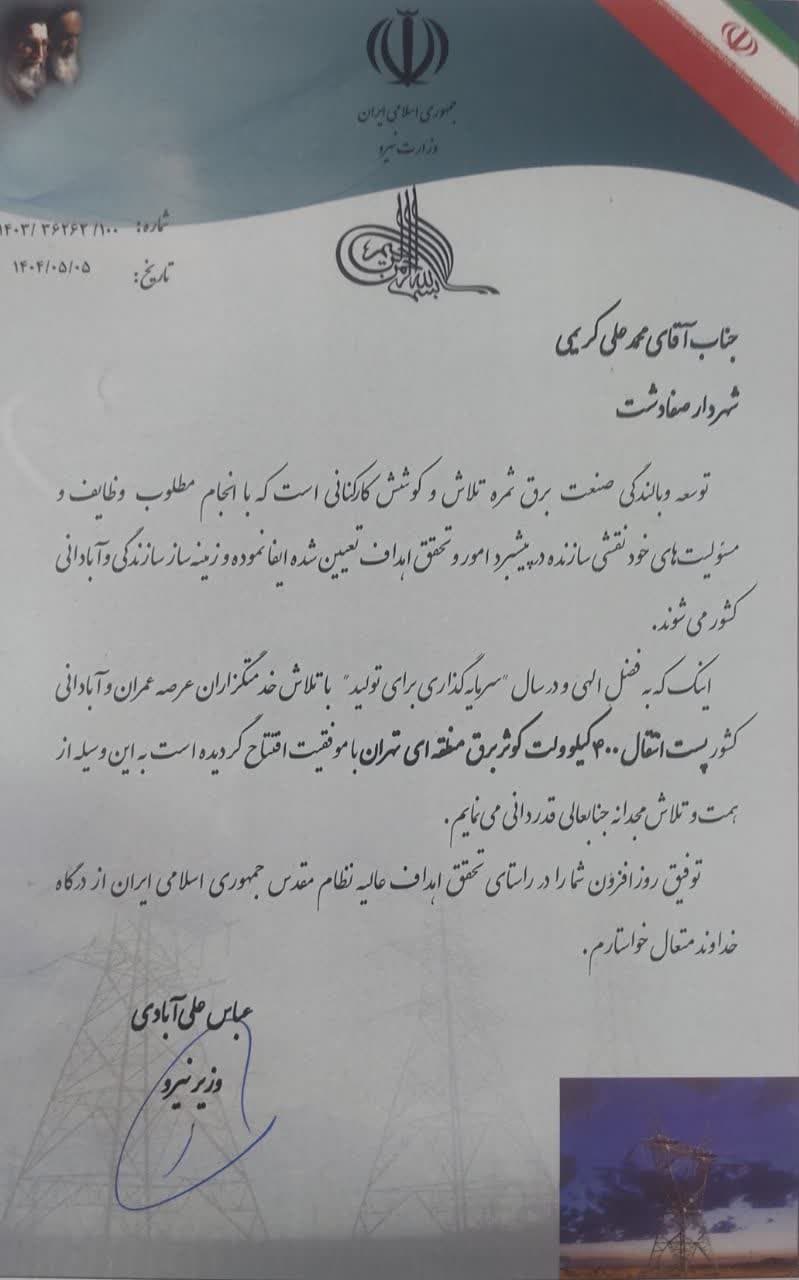 جمهوری اسلامی ایران
وزارت نیرو
بسم الله الرحمن الرحیم
شماره: ۱۴۰۳/ ۳۶۲۶۳ /۱۰۰
تاریخ: ۱۴۰۴/۰۵/۰۵
جناب آقای محمد علی کریمی
شهردار صفادشت
توسعه و بالندگی صنعت برق ثمره تلاش و کوشش کارکنانی است که با انجام مطلوب وظایف و
مسئولیت‌های خود نقشی سازنده در پیشبرد امور و تحقق اهداف تعیین شده ایفا نموده و زمینه ساز سازندگی و آبادانی
کشور می شوند.
اینک که به فضل الهی و در سال "سرمایه گذاری برای تولید" با تلاش خدمتگزاران عرصه عمران و آبادانی
کشور پست انتقال ۴۰۰ کیلوولت کوثر برق منطقه ای تهران با موفقیت افتتاح گردیده است به این وسیله از
همت و تلاش مجدانه جنابعالی قدردانی می نمایم.
توفیق روزافزون شما را در راستای تحقق اهداف عالیه نظام مقدس جمهوری اسلامی ایران از درگاه
خداوند متعال خواستارم.
عباس علی آبادی
وزیر نیرو